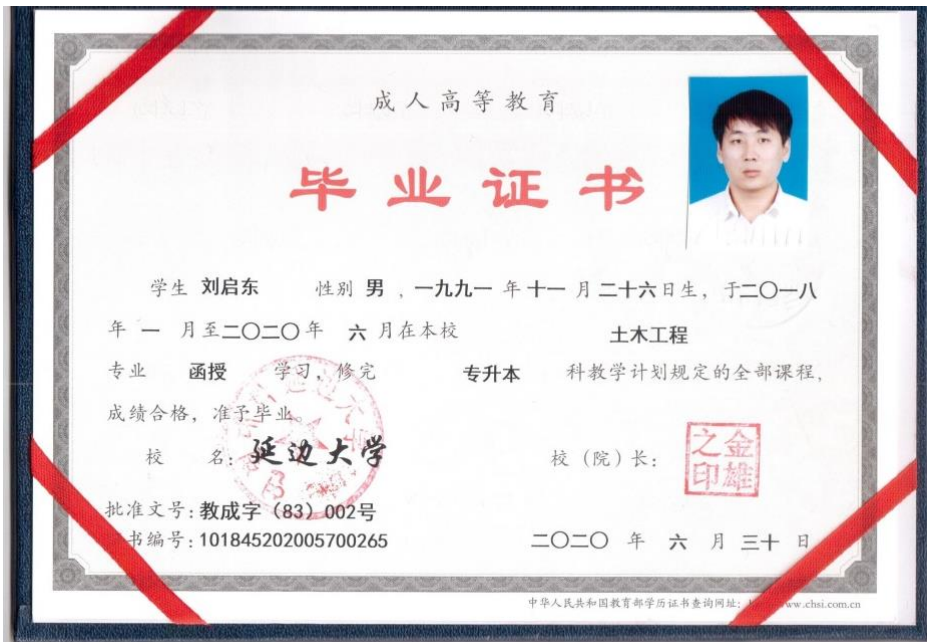 成人高等教育
毕业证书
学生 刘启东 性别 男 ，一九九一 年 十一 月 二十六日生，于二〇一八
年 一 月至二〇二〇年 六 月在本校 土木工程
专业 函授 学习，修完 专升本 科教学计划规定的全部课程，
成绩合格，准予毕业。
校 名：延边大学 校（院）长：
金雄之印
批准文号：教成字（83）002号
书编号：101845202005700265 二〇二〇 年 六 月 三十 日
中华人民共和国教育部学历证书查询网址： www.chsi.com.cn